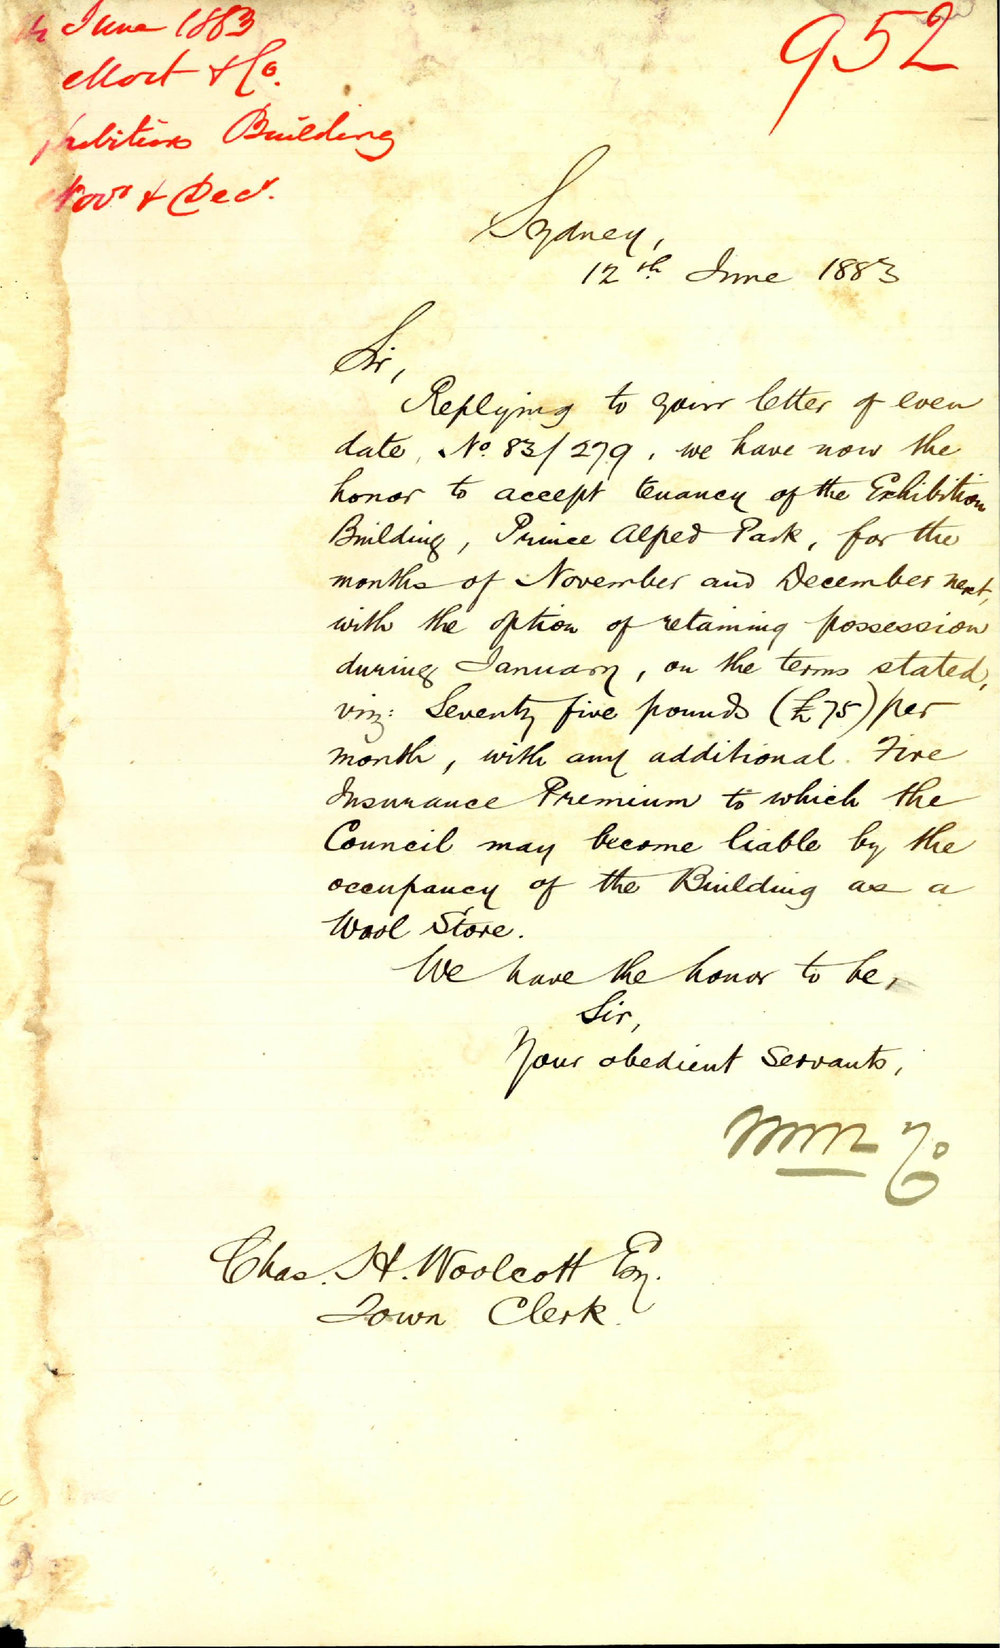 June 1883
Mort & Co.
hibition Building
Novr & Decr.
952
Sydney,
12th June 1883
Sir,
Replying to your letter of even
date, No. 83/279, we have now the
honor to accept tenancy of the Exhibition
Building, Prince Alfred Park, for the
months of November and December next,
with the option of retaining possession
during January, on the terms stated,
viz: Seventy five pounds (£75) per
month, with any additional Fire
Insurance Premium to which the
Council may become liable by the
occupancy of the Building as a
Wool Store.
We have the honor to be,
Sir,
Your obedient Servants,
Chas. H. Woolcott Esq.
Town Clerk.